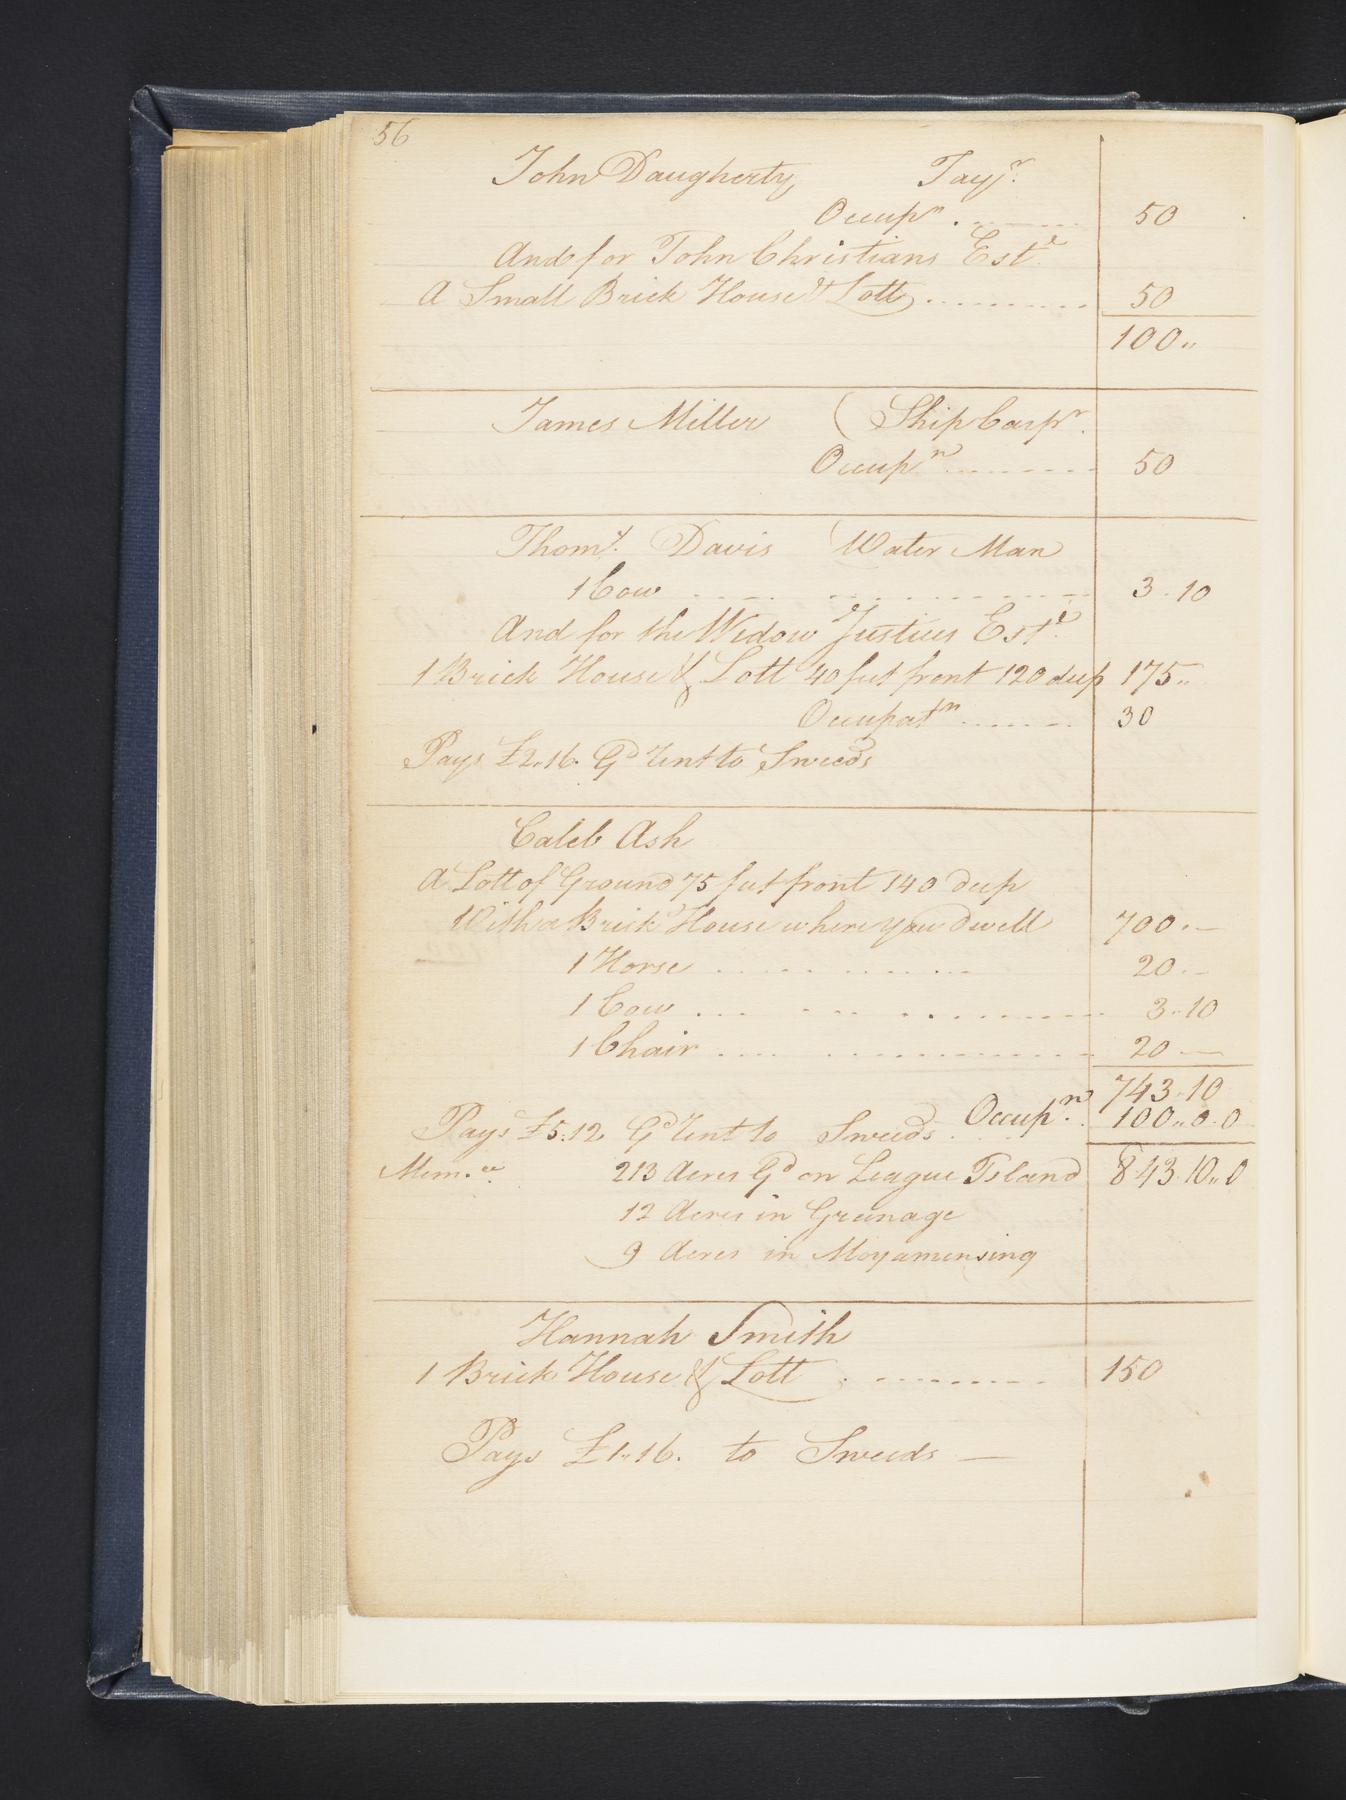 56
John Daugherty Tayr.
Occupn. 50
And for John Christians Este.
A Small Brick House & Lott 50
100
James Miller (Ship Carpr.
Occupn 50
Thoms. Davis (Water Man
1 Cow 3.10
And for the Widow Justices Este.
1 Brick House & Lott 40 feet front 120 deep 175
Occupatn 30
Pays £2.16. Gd Rent to Sweeds
Caleb Ash
A Lott of Ground 75 feet front 140 deep
With a Brick House where you dwell 700.—
1 Horse 20.—
1 Cow 3.10
1 Chair 20 —
743.10
Pays £5.12 Gd Rent to Sweeds. Occupn. 100..0.0
Mem. 213 Acres Gd on League Island 843.10..0
12 Acres in Greenage
9 Acres in Moyamensing
Hannah Smith
1 Brick House & Lott 150
Pays £1..16. to Sweeds —